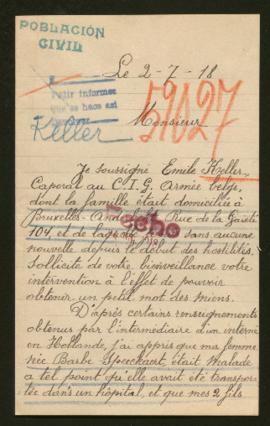 POBLACIÓN
CIVIL
Le 2-7-18
Pedir informes
que se hace así
59027
Keller
Monsieur
Je soussigné Emile Keller,
Caporal au C.I.G. Armée belge,
dont la famille était domiciliée à
Bruxelles- Rue de la Gaieté
104 et de laquelle sans aucune
nouvelle depuis le début des hostilités,
sollicite de votre bienveillance votre
intervention à l'effet de pouvoir
obtenir un petit mot des miens.
D'après certains renseignements
obtenus par l'intermédiaire d'un interné
en Hollande, j'ai appris que ma femme
née Barbe Speeckaert, était malade
a tel point qu'elle avait été transpor
tée dans un hôpital, et que mes 2 fils